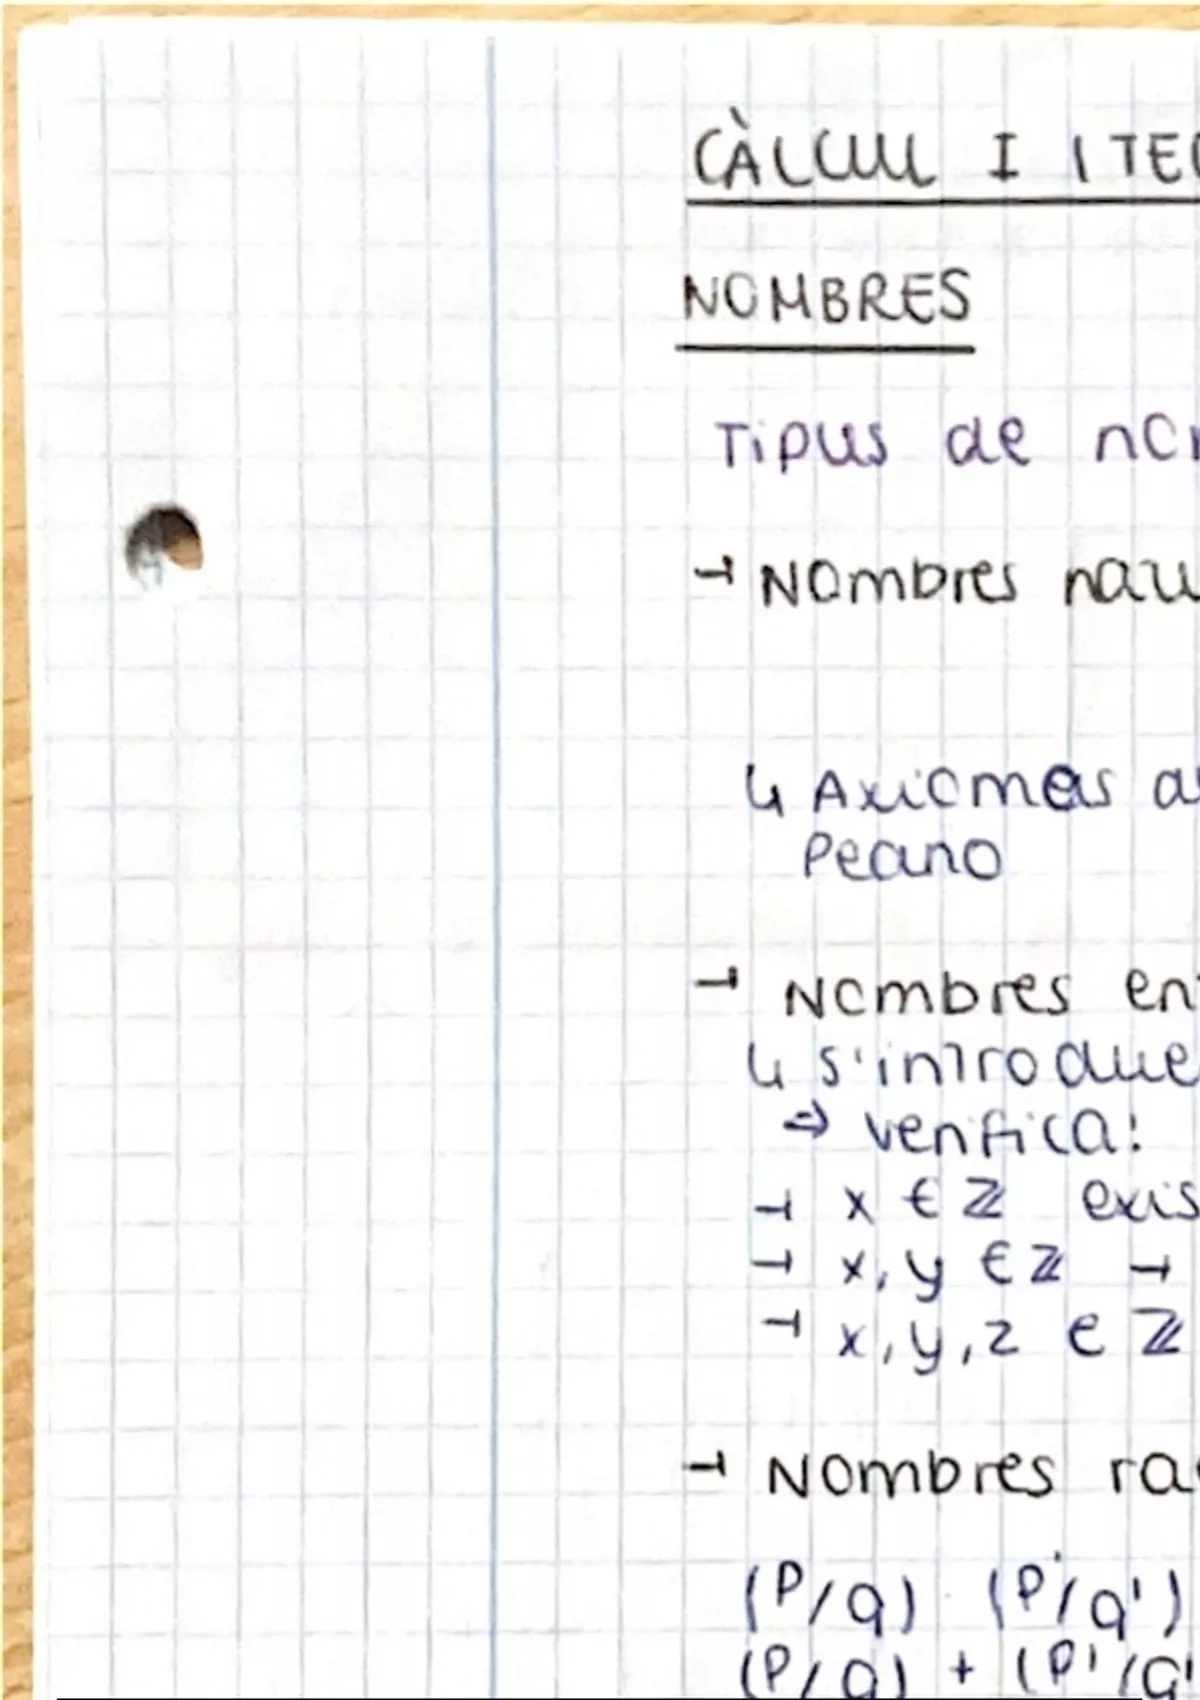 CÀLCUL I ITE
NOMBRES
Tipus de no
→ Nombres natu
↳ Axiomas a
Peano
→ Nombres en
↳ s'introdue
⇒ verifica:
→ x ∈ ℤ exis
→ x, y ∈ ℤ →
→ x, y, z ∈ ℤ
→ Nombres ra
(P/q) · (P'/q')
(P/q) + (P'/q'